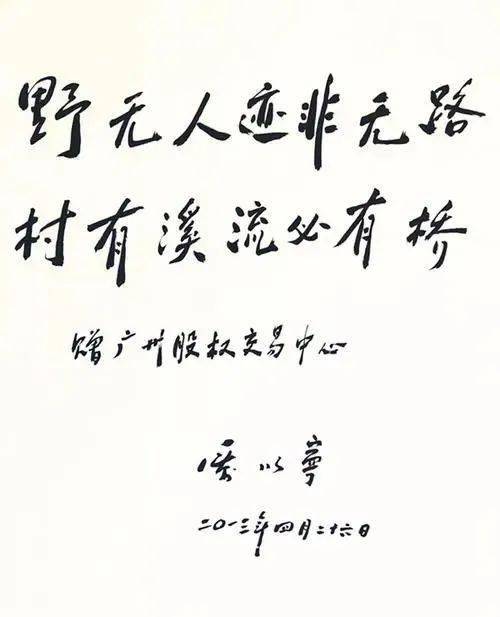 野无人迹非无路
村有溪流必有桥
赠广州股权交易中心
厉以宁
二〇一三年四月二十六日